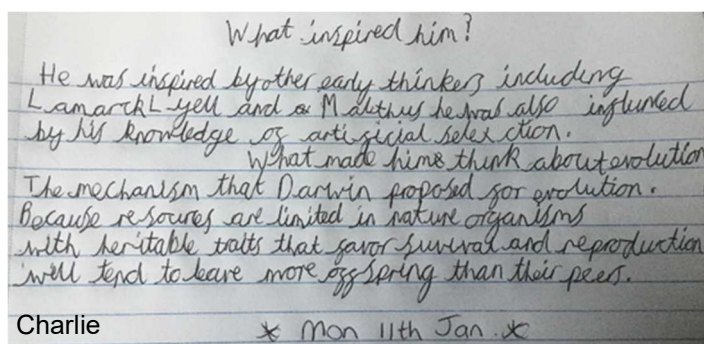 What inspired him?
He was inspired by other early thinkers including
Lamarck Lyell and a Malthus he was also influnced
by his knowledge of artificial selexction.
What made hims think about evolution
The mechanism that Darwin proposed for evolution.
Because resoures are limited in nature organisms
with heritable traits that favor survival and reproduction
will tend to leave more offspring than their peers.
Charlie
* Mon 11th Jan. *